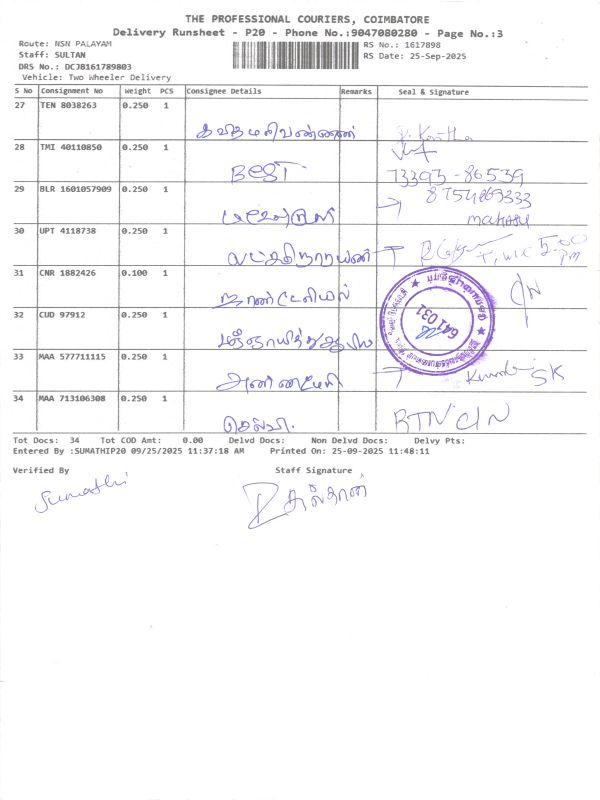 THE PROFESSIONAL COURIERS, COIMBATORE
Delivery Runsheet - P20 - Phone No.:9047080280 - Page No.:3
Route: NSN PALAYAM RS No.: 1617898
Staff: SULTAN RS Date: 25-Sep-2025
DRS No.: DCJB161789803
Vehicle: Two Wheeler Delivery
S No Consignment No Weight PCS Consignee Details Remarks Seal & Signature
27 TEN 8038263 0.250 1
கவிதமணிவண்ணன்
28 TMI 40110850 0.250 1
BEST 73393-86539
29 BLR 1601057909 0.250 1
30 UPT 4118738 0.250 1
லட்சுமிநாராயணன் 5.00 pm
31 CNR 1882426 0.100 1
CN
32 CUD 97912 0.250 1
641 031
33 MAA 577711115 0.250 1
SK
34 MAA 713106308 0.250 1
செல்வி. RTN C/N
Tot Docs: 34 Tot COD Amt: 0.00 Delvd Docs: Non Delvd Docs: Delvy Pts:
Entered By :SUMATHIP20 09/25/2025 11:37:18 AM Printed On: 25-09-2025 11:48:11
Verified By Staff Signature
Sumathi சுல்தான்